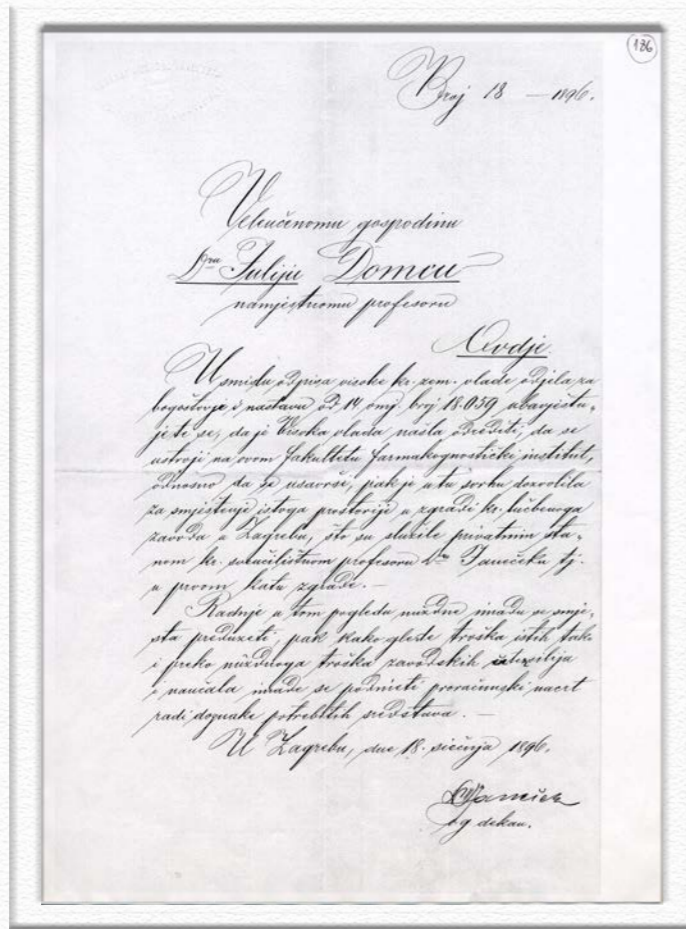 186
Broj 18 — 1896.
Veleučenomu gospodinu
Dru Juliju Domcu
namjestnomu profesoru
Ovdje.
U smislu odpisa visoke kr. zem. vlade odjela za
bogoštovje i nastavu od 14 omj. broj 18.059 obavješću-
jete se, da je Visoka vlada našla odrediti, da se
ustroji na ovom fakultetu farmakognostički institut,
odnosno da se usavrši, pak je u tu svrhu dozvolila
za smještenje istoga prostorije u zgradi kr. lučbenoga
zavoda u Zagrebu, što su služile privatnim sta-
nom kr. sveučilištnom profesoru Dru Janečeku tj.
u prvom katu zgrade. —
Radnje u tom pogledu nuždne imadu se smje-
sta preduzeti, pak kako glede troška istih tako
i preko nuždnoga troška zavodskih utensilija
i naučala imade se podnieti proračunski nacrt
radi doznake potrebitih sredstava. —
U Zagrebu, dne 18. siečnja 1896.
dekan.